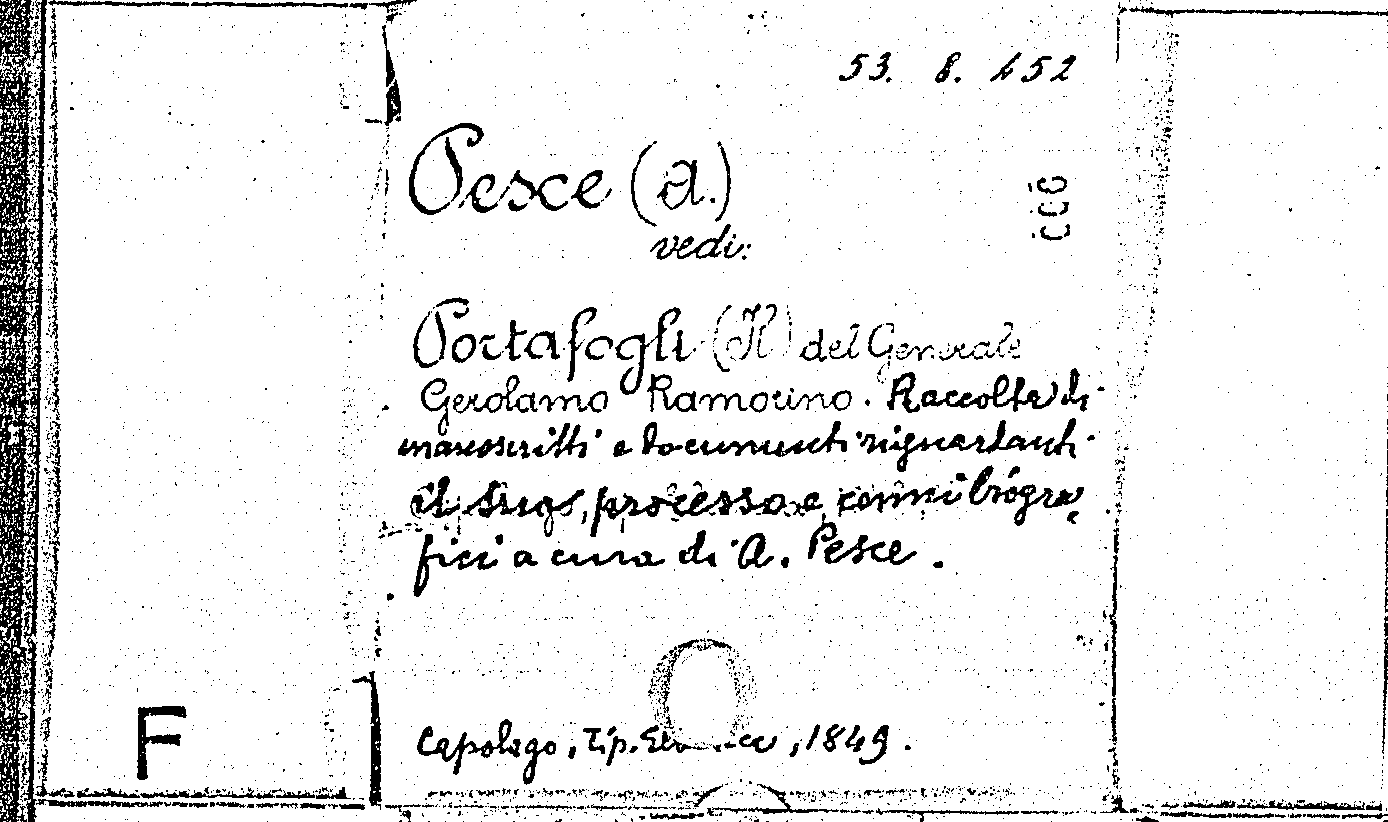 53. 8. 452
Pesce (A.)
vedi:
Portafogli (Il) del Generale
Gerolamo Ramorino. Raccolta di
manoscritti e documenti riguardanti
il suo processo e cenni biogra
fici a cura di A. Pesce.
Capolago, Tip. 1849.
F